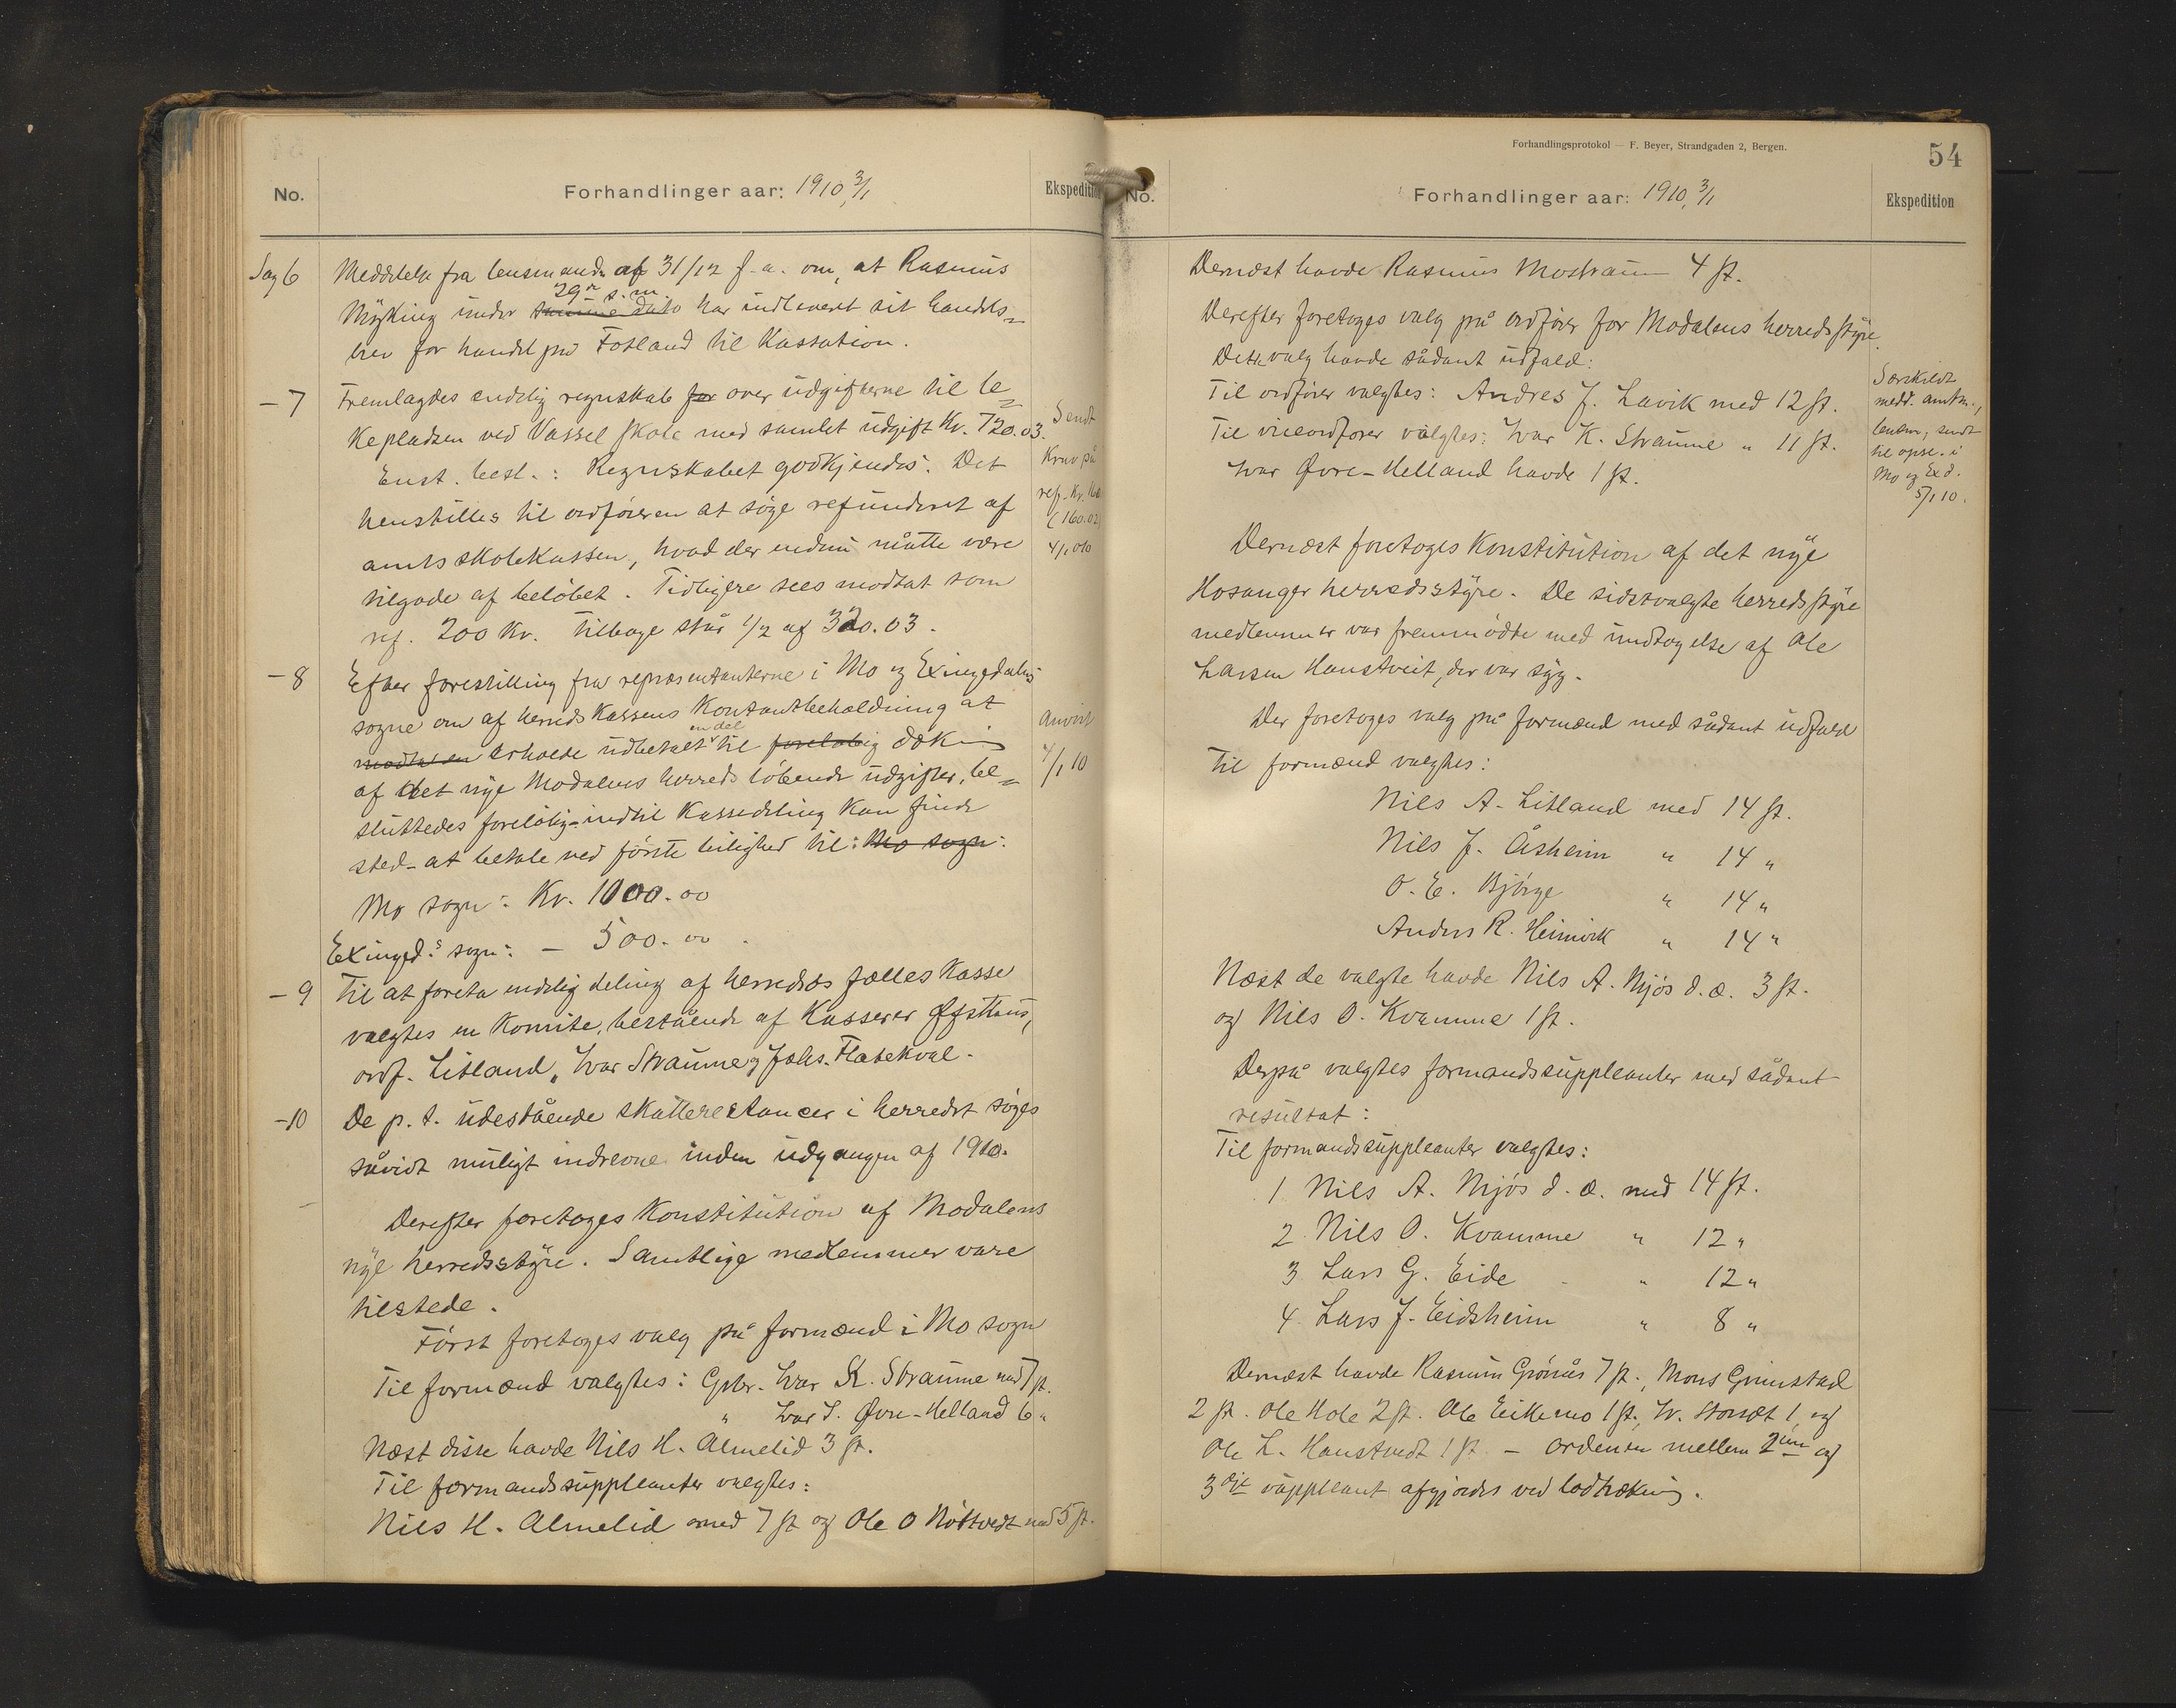 No.
Forhandlinger aar: 1910, 3/1
Ekspedition
Sag 6
Meddelelse fra lensmanden af 31/12 f. a. om, at Rasmus
29de s. m.
Myking under samme dato har indleveret sit handels-
brev for handel paa Fotland til kassation.
- 7
Fremlagdes endelig regnskab for over udgifterne til le-
kepladsen ved Vassel skole med samlet udgift Kr. 720.03.
Enst. besl.: Regnskabet godkjendes. Det
henstilles til ordføreren at søge refunderet af
amtsskolekassen, hvad der endnu måtte være
tilgode af beløbet. Tidligere sees modtat som
ref. 200 Kr. Tilbage står 1/2 af 320.03.
Sendt
Krav på
ref. Kr.
(160.02)
4/1 010
- 8
Efter forestilling fra repræsentanterne i Mo og Exingedalens
sogne om af herredskassens kontantbeholdning at
en del
modta en erholde udbetalt til foreløbig dækning
af det nye Modalens herreds løbende udgifter, be-
sluttedes foreløbig - indtil kassedeling kan finde
sted - at betale ved første leilighed til: Mo sogn:
Mo sogn: Kr. 1000.00
Exinged.s sogn: - 500.00.
Anvist
4/1 10
- 9
Til at foreta endelig deling af herredets fælles kasse
valgtes en komite, bestående af kasserer Øfsttus,
ordf. Litland, Ivar Straume og Johs. Flatekval.
- 10
De p. t. udestående skatterestancer i herredet søges
såvidt muligt inddrevne inden udgangen af 1910.
Derefter foretoges konstitution af Modalens
nye herredsstyre. Samtlige medlemmer vare
tilstede.
Først foretoges valg på formænd i Mo sogn
Til formænd valgtes: Gbr. Ivar K. Straume med 7 st.
" Ivar I. Øvre-Helland 6 "
Næst disse havde Nils H. Almelid 3 st.
Til formandssuppleanter valgtes:
Nils H. Almelid med 7 st og Ole O Nøttvedt med 5 st.
Forhandlingsprotokol — F. Beyer, Strandgaden 2, Bergen.
54
No.
Forhandlinger aar: 1910, 3/1
Ekspedition
Dernæst havde Rasmus Mostraum 4 st.
Derefter foretoges valg på ordfører for Modalens herredsstyre.
Dette valg havde sådant udfald:
Til ordfører valgtes: Andres J. Lavik med 12 st.
Til viceordfører valgtes: Ivar K. Straume " 11 st.
Ivar Øvre-Helland havde 1 st.
Særskildt
medd. amtm.,
lensm., sendt
til opsl. i
Mo og Exd.
5/1 10.
Dernæst foretoges konstitution af det nye
Hosanger herredsstyre. De sidstvalgte herredsstyre
medlemmer var fremmødte med undtagelse af Ole
Larsen Haustveit, der var syg.
Der foretoges valg på formænd med sådant udfald
Til formænd valgtes:
Nils A. Litland med 14 st.
Nils J. Åsheim " 14 "
O. E. Bjørge " 14 "
Anders R. Heimvik " 14 "
Næst de valgte havde Nils A. Mjøs d. æ. 3 st.
og Nils O. Kvamme 1 st.
Derpå valgtes formandssuppleanter med sådant
resultat:
Til formandssuppleanter valgtes:
1 Nils A. Mjøs d. æ. med 14 st.
2 Nils O. Kvamme " 12 "
3 Lars G. Eide " 12 "
4 Lars J. Eidsheim " 8 "
Dernæst havde Rasmus Grønås 7 st., Mons Grimstad
2 st. Ole Hole 2 st. Ole Eikemo 1 st., 1, og
Ole L. Haustvedt 1 st - Ordenen mellem 2den og
3dje suppleant afgjordes ved lodtrækning.